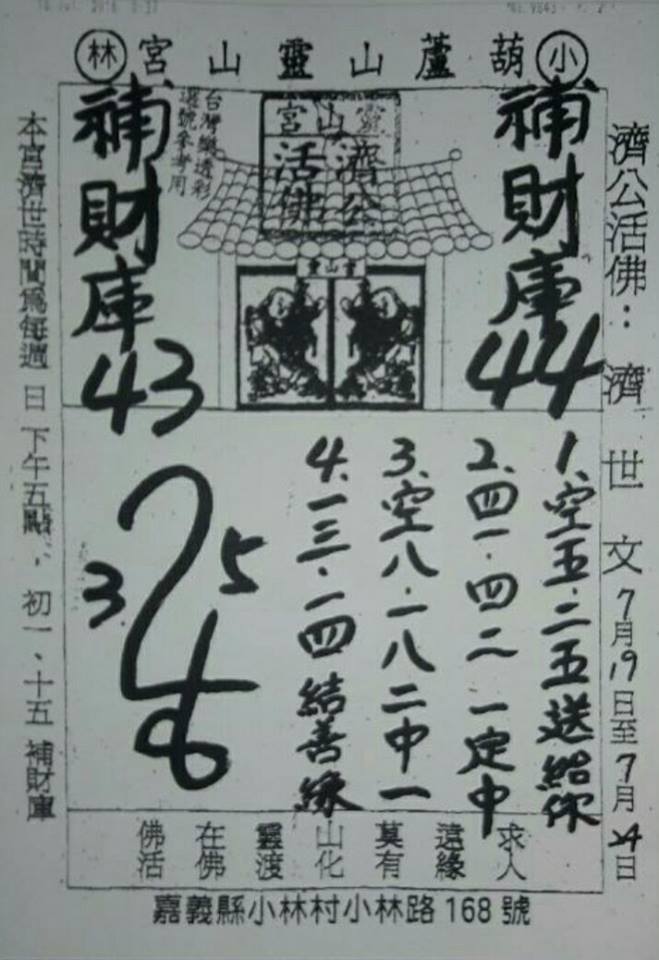 小葫蘆山靈山宮林
濟公活佛：濟世文7月19日至7月24日
補財庫44
靈山宮
濟公
活佛
台灣樂透彩
選號參考用
補財庫43
1、空五·二五送給你
2、四一·四二一定中
3、空八·一八二中一
4、一三·一四結善緣
3
5
佛在靈山莫遠求
活佛渡化有緣人
本宮濟世時間為每週日下午五點，初一、十五補財庫
嘉義縣小林村小林路168號